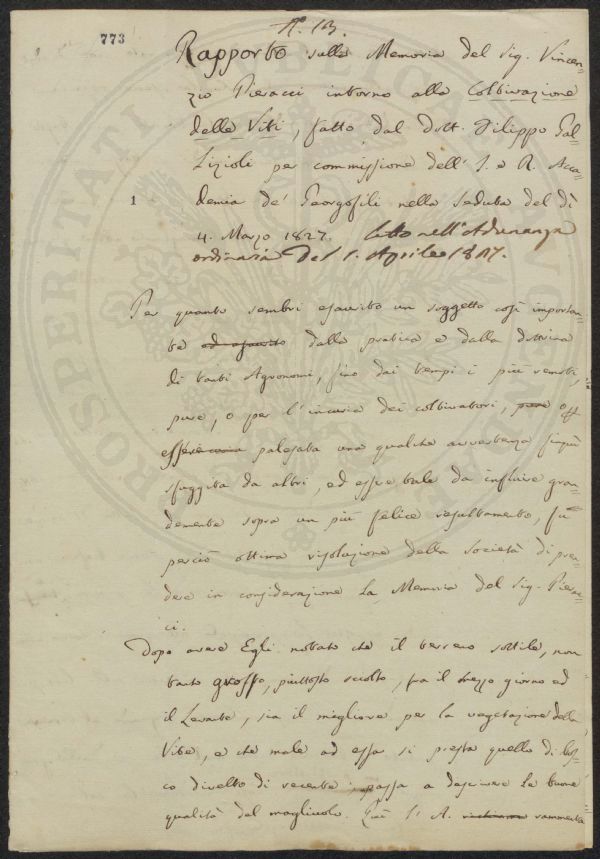 N.º 13.
773
Rapporto sulla Memoria del Sig. Vincen-
zio Pieracci intorno alla Coltivazione
delle Viti, fatto dal Dott. Filippo Gal-
lizioli per commissione dell' I. e R. Acca-
1
demia de' Georgofili nella Seduta del dì
4. Marzo 1827. Letto nell'Adunanza
ordinaria del 1. Aprile 1827.
Per quanto sembri esaurito un soggetto così importan-
te ed esaurito dalla pratica e dalla dottrina
di tanti Agronomi, fino dai tempi i più remoti,
pure, o per l'incuria dei coltivatori, pure
palesata una qualche avvertenza
sfuggita da altri, ed esser tale da influire gran-
demente sopra un più felice resultamento, fu
perciò ottima risoluzione della Società di pren-
dere in considerazione la Memoria del Sig. Pierac-
ci.
Dopo avere Egli notato che il terreno sottile, non
tanto grosso, piuttosto sciolto, fra il mezzo giorno ed
il Levante, sia il migliore per la vegetazione della
Vite, e che male ad essa si presta quello di bos-
co divelto di recente, passa a descrivere le buone
qualità del magliolo. Qui l'A. rammenta
ROSPERITATI
PUBLICAE
AUGENDAE